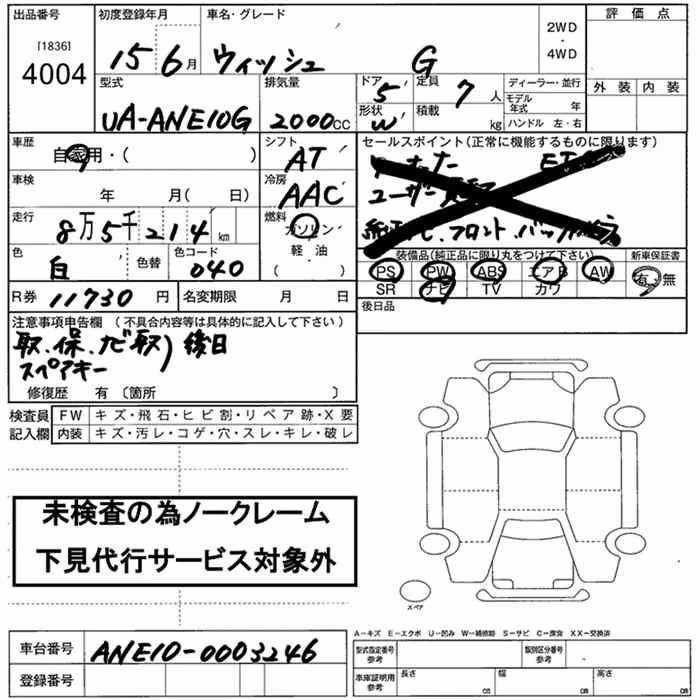 出品番号 初度登録年月 車名・グレード 評価点
[1836]
4004 15 6月 ウィッシュ G 2WD・4WD
型式 排気量 ドア 5 定員 7人 ディーラー・並行 外装 内装
モデル年式 年
UA-ANE10G 2000CC 形状 W 積載 kg ハンドル 左・右
車歴 自家用・( ) シフト AT セールスポイント(正常に機能するものに限ります)
車検 年 月( 日) 冷房 AAC
走行 8万5千214km 燃料 ガソリン フロント
色 白 色替 色コード 040 軽・油 装備品(純正品に限り丸をつけて下さい) 新車保証書
PS PW ABS エアB AW 有・無
R券 11730円 名変期限 月 日 SR ナビ TV カワ
注意事項申告欄 (不具合内容等は具体的に記入して下さい) 後日品
取、保、ナビ取 後日
スペアキー
修復歴 有 〔箇所 〕
検査員 FW キズ・飛石・ヒビ割・リペア跡・X要
記入欄 内装 キズ・汚レ・コゲ・穴・スレ・キレ・破レ
未検査の為ノークレーム
下見代行サービス対象外
スペア
A-キズ E-エクボ U-凹ミ W-補修跡 S-サビ C-腐食 XX-交換済
車台番号 ANE10-0003246 型式指定番号 参考 類別区分番号 参考
登録番号 車庫証明用 参考 長さ cm 幅 cm 高さ cm